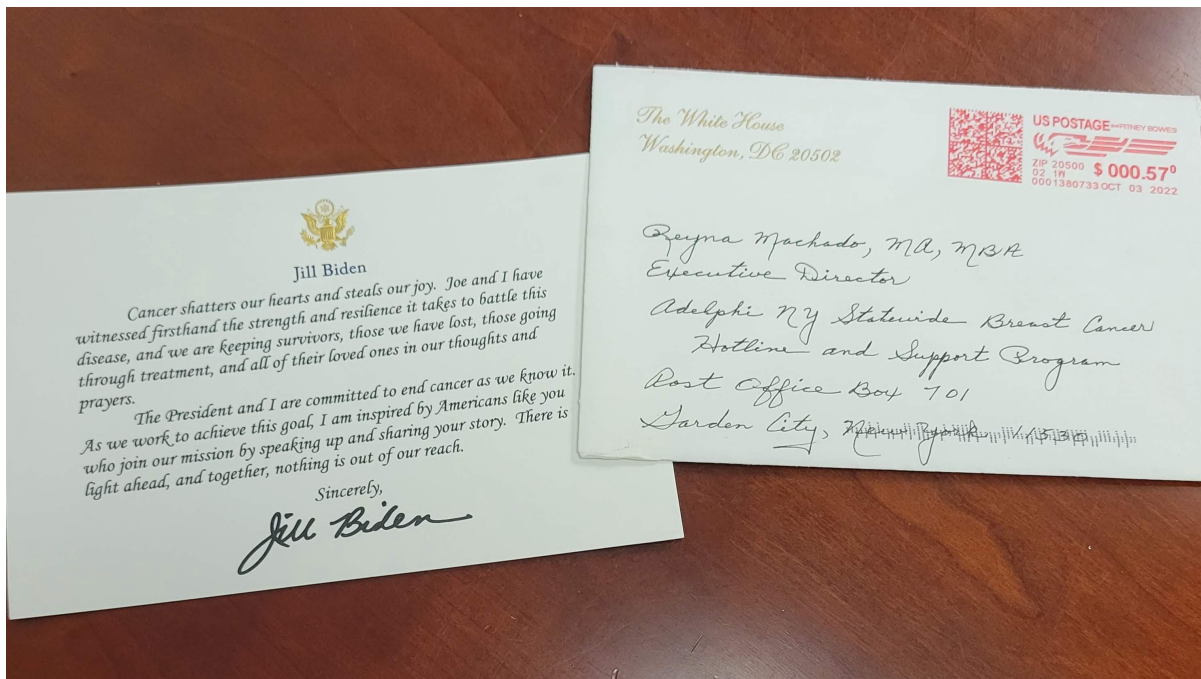 Jill Biden
Cancer shatters our hearts and steals our joy. Joe and I have
witnessed firsthand the strength and resilience it takes to battle this
disease, and we are keeping survivors, those we have lost, those going
through treatment, and all of their loved ones in our thoughts and
prayers.
The President and I are committed to end cancer as we know it.
As we work to achieve this goal, I am inspired by Americans like you
who join our mission by speaking up and sharing your story. There is
light ahead, and together, nothing is out of our reach.
Sincerely,
Jill Biden
The White House
Washington, DC 20502
US POSTAGE PITNEY BOWES
ZIP 20500
02 1W
$ 000.57⁰
0001380733 OCT 03 2022
Reyna Machado, MA, MBA
Executive Director
Adelphi NY Statewide Breast Cancer
Hotline and Support Program
Post Office Box 701
Garden City, New York 11530